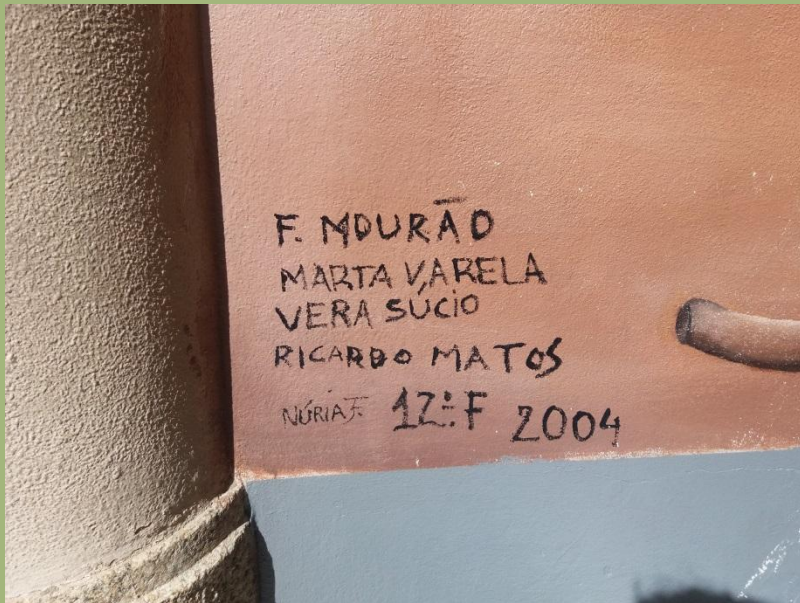 F. MOURÃO
MARTA VARELA
VERA SÚCIO
RICARDO MATOS
NÚRIA F. 12º F 2004